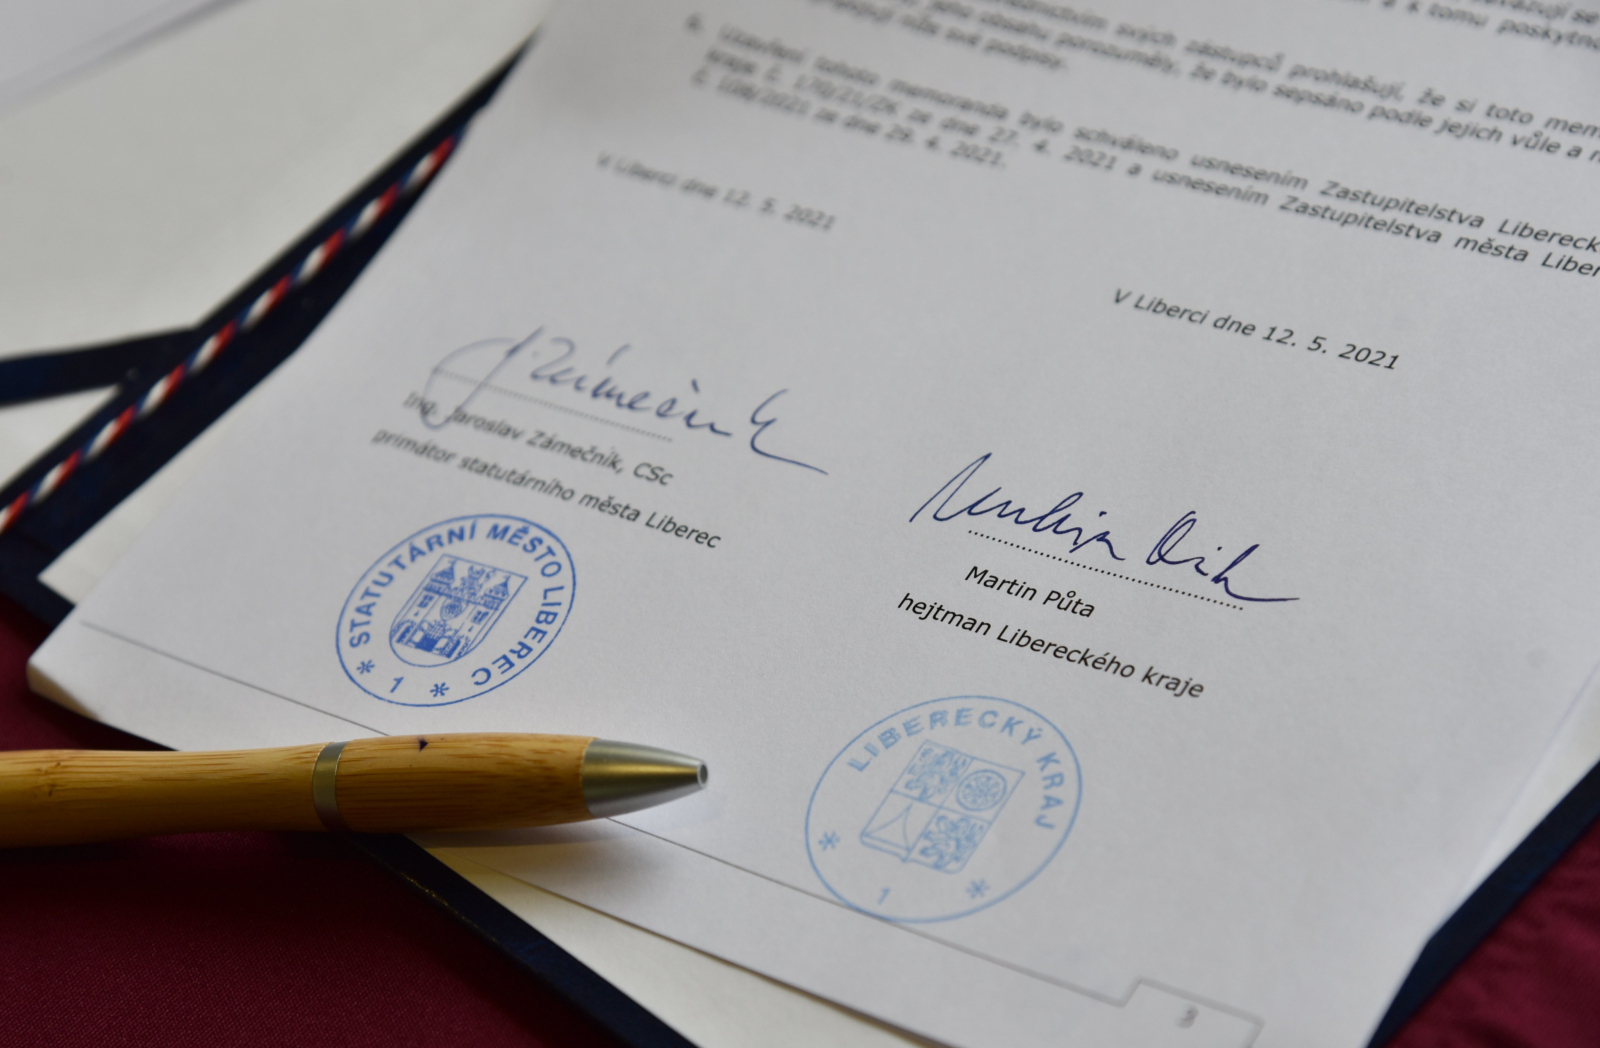 a k tomu poskytno
svých zástupců prohlašují, že si toto mem
jeho obsahu porozuměly, že bylo sepsáno podle jejich vůle a n
níže své podpisy.
6. Uzavření tohoto memoranda bylo schváleno usnesením Zastupitelstva Libereck
kraje č. 170/21/ZK ze dne 27. 4. 2021 a usnesením Zastupitelstva města Liber
č. 108/2021 ze dne 29. 4. 2021.
V Liberci dne 12. 5. 2021
V Liberci dne 12. 5. 2021
J. Zámečník
Ing. Jaroslav Zámečník, CSc
primátor statutárního města Liberec
Martin Půta
hejtman Libereckého kraje
STATUTÁRNÍ MĚSTO LIBEREC
* 1 *
LIBERECKÝ KRAJ
* 1 *
3